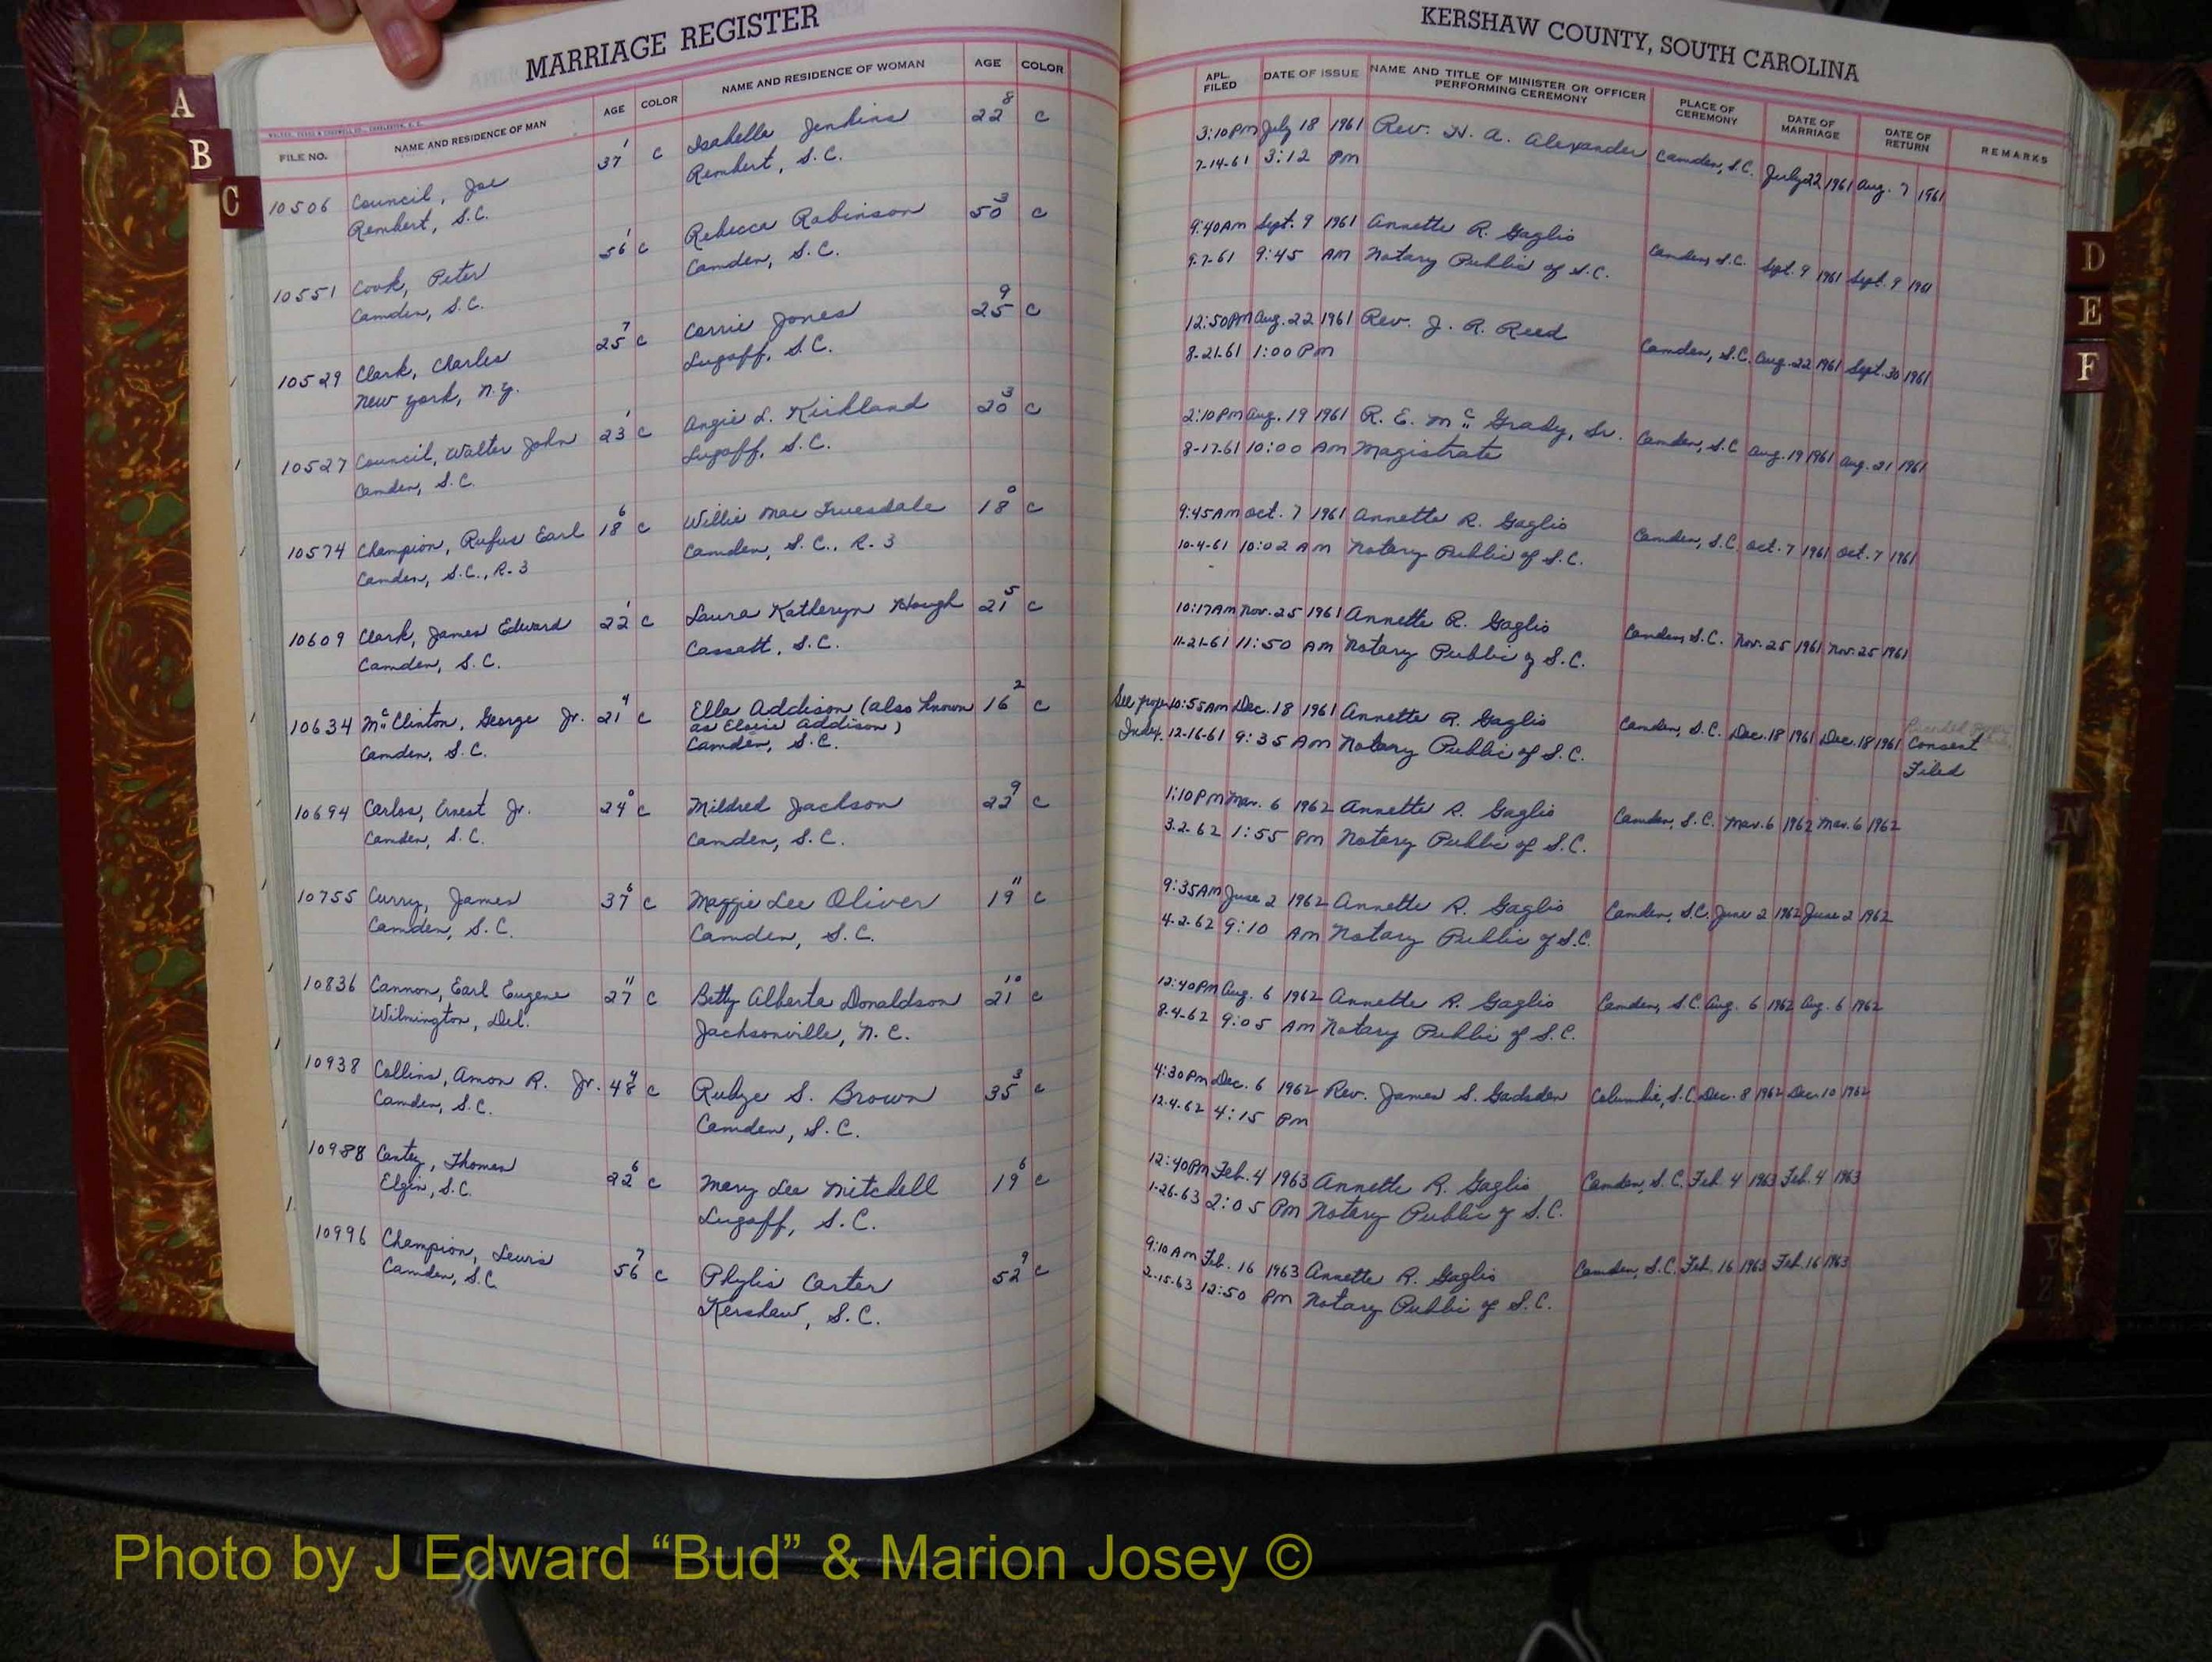 MARRIAGE REGISTER
FILE NO. NAME AND RESIDENCE OF MAN AGE COLOR NAME AND RESIDENCE OF WOMAN AGE COLOR
A
B
C
10506 Council, Joe 37 1 C Isabella Jenkins 22 8 C
Rembert, S.C. Rembert, S.C.
10551 Cook, Peter 56 1 C Rebecca Robinson 50 3 C
Camden, S.C. Camden, S.C.
10529 Clark, Charles 25 7 C Corrie Jones 25 9 C
New York, N.Y. Lugoff, S.C.
10527 Council, Walter John 23 1 C Angie L. Kirkland 20 3 C
Camden, S.C. Lugoff, S.C.
10574 Champion, Rufus Earl 18 6 C Willie Mae Truesdale 18 0 C
Camden, S.C., R-3 Camden, S.C., R-3
10609 Clark, James Edward 22 1 C Laura Katheryn Hough 21 5 C
Camden, S.C. Cassatt, S.C.
10634 McClinton, George Jr. 21 4 C Ella Addison (also known 16 2 C
as Elouie Addison)
Camden, S.C. Camden, S.C.
10694 Carlos, Ernest Jr. 24 0 C Mildred Jackson 22 9 C
Camden, S.C. Camden, S.C.
10755 Curry, James 37 6 C Maggie Lee Oliver 19 11 C
Camden, S.C. Camden, S.C.
10836 Cannon, Earl Eugene 27 11 C Betty Alberta Donaldson 21 10 C
Wilmington, Del. Jacksonville, N.C.
10938 Collins, Amon R. Jr. 48 4 C Rubye S. Brown 35 3 C
Camden, S.C. Camden, S.C.
10988 Cantey, Thomas 22 6 C Mary Lee Mitchell 19 6 C
Elgin, S.C. Lugoff, S.C.
10996 Champion, Lewis 56 7 C Phylis Carter 52 9 C
Camden, S.C Kershaw, S.C.
KERSHAW COUNTY, SOUTH CAROLINA
APL. FILED DATE OF ISSUE NAME AND TITLE OF MINISTER OR OFFICER PERFORMING CEREMONY PLACE OF CEREMONY DATE OF MARRIAGE DATE OF RETURN REMARKS
3:10 PM July 18 1961 Rev. H. A. Alexander Camden, S.C. July 22 1961 Aug. 7 1961
7-14-61 3:12 PM
9:40 AM Sept. 9 1961 Annette R. Gaglio Camden, S.C. Sept. 9 1961 Sept. 9 1961
9-7-61 9:45 AM Notary Public of S.C.
12:50 PM Aug. 22 1961 Rev. J. R. Reed Camden, S.C. Aug. 22 1961 Sept. 30 1961
8-21-61 1:00 PM
2:10 PM Aug. 19 1961 R. E. McGrady, Sr. Camden, S.C Aug. 19 1961 Aug. 21 1961
8-17-61 10:00 AM Magistrate
9:45 AM Oct. 7 1961 Annette R. Gaglio Camden, S.C. Oct. 7 1961 Oct. 7 1961
10-4-61 10:02 AM Notary Public of S.C.
10:17 AM Nov. 25 1961 Annette R. Gaglio Camden, S.C. Nov. 25 1961 Nov. 25 1961
11-21-61 11:50 AM Notary Public of S.C.
See 10:55 AM Dec. 18 1961 Annette R. Gaglio Camden, S.C. Dec. 18 1961 Dec. 18 1961 Consent
Index 12-16-61 9:35 AM Notary Public of S.C. Filed
1:10 PM Mar. 6 1962 Annette R. Gaglio Camden, S.C. Mar. 6 1962 Mar. 6 1962
3-2-62 1:55 PM Notary Public of S.C.
9:35 AM June 2 1962 Annette R. Gaglio Camden, S.C. June 2 1962 June 2 1962
4-2-62 9:10 AM Notary Public of S.C.
12:40 PM Aug. 6 1962 Annette R. Gaglio Camden, S.C. Aug. 6 1962 Aug. 6 1962
8-4-62 9:05 AM Notary Public of S.C.
4:30 PM Dec. 6 1962 Rev. James S. Gadsden Columbia, S.C. Dec. 8 1962 Dec. 10 1962
12-4-62 4:15 PM
12:40 PM Feb. 4 1963 Annette R. Gaglio Camden, S.C. Feb. 4 1963 Feb. 4 1963
1-26-63 2:05 PM Notary Public of S.C.
9:10 AM Feb. 16 1963 Annette R. Gaglio Camden, S.C. Feb. 16 1963 Feb. 16 1963
2-15-63 12:50 PM Notary Public of S.C.
D
E
F
N
Photo by J Edward “Bud” & Marion Josey ©